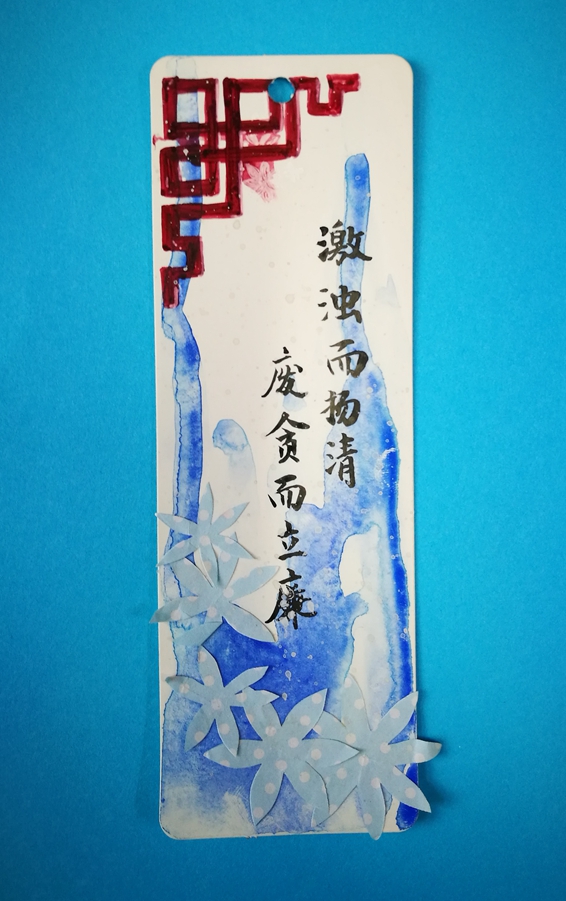 激浊而扬清
废贪而立廉